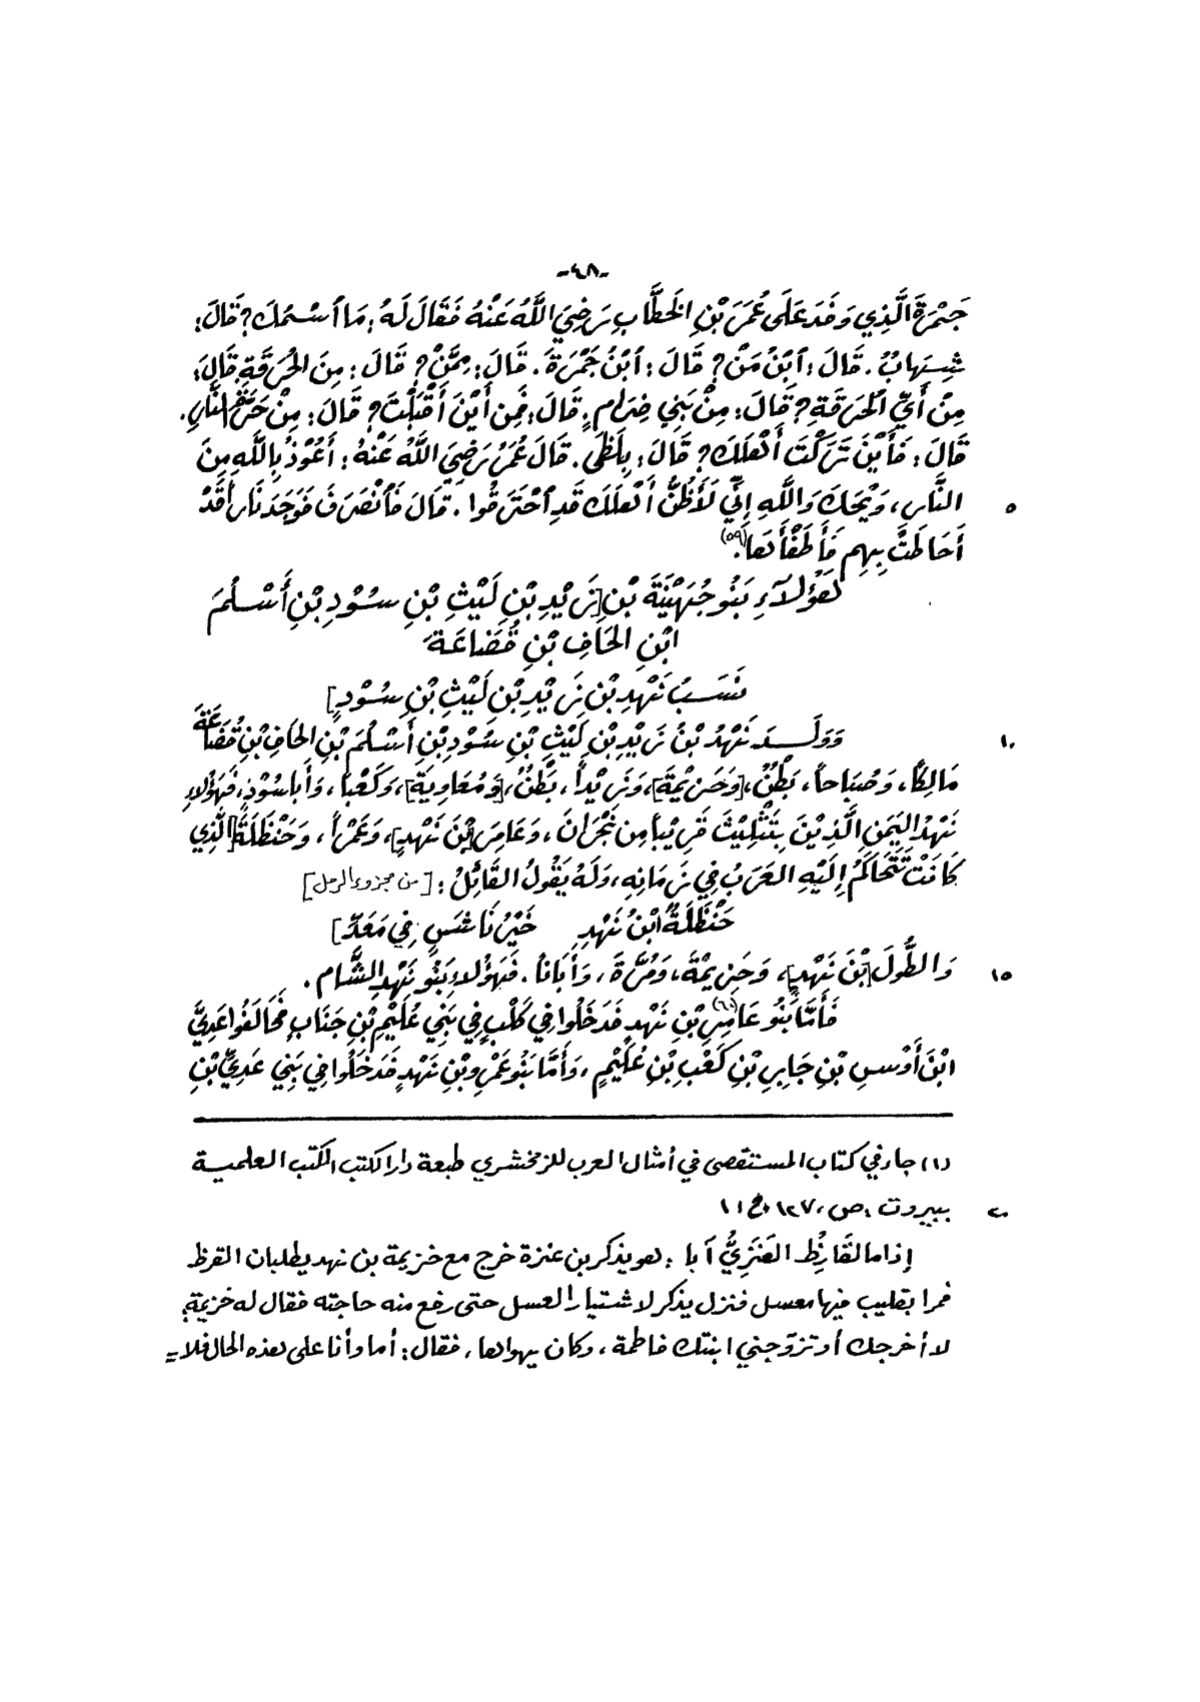 -٤٨-
جَمْرَةَ الَّذِي وَفَدَ عَلَى عُمَرَ بْنِ الخَطَّابِ رَضِيَ اللَّهُ عَنْهُ فَقَالَ لَهُ: مَا اسْمُكَ؟ قَالَ:
شِهَابٌ. قَالَ: ابْنُ مَنْ؟ قَالَ: ابْنُ جَمْرَةَ. قَالَ: مِمَّنْ؟ قَالَ: مِنَ الحُرَقَةِ قَالَ:
مِنْ أَيِّ الحُرَقَةِ؟ قَالَ: مِنْ بَنِي ضِرَامٍ. قَالَ: فَمِن أَيْنَ أَقْبَلْتَ؟ قَالَ: مِنْ حَرَّةِ النَّارِ.
قَالَ: فَأَيْنَ تَرَكْتَ أَهْلَكَ؟ قَالَ: بِلَظَى. قَالَ عُمَرُ رَضِيَ اللَّهُ عَنْهُ: أَعُوْذُ بِاللَّهِ مِنَ
النَّارِ، وَيْحَكَ وَاللَّهِ إِنِّي لَأَظُنُّ أَهْلَكَ قَدِ احْتَرَقُوا. قَالَ فَانْصَرَفَ فَوَجَدَ نَاراً قَدْ ٥
أَحَاطَتْ بِهِم فَأَطْفَأَهَا.(٥٩)
هَؤُلَاءِ بَنُو جُهَيْنَةَ بْنِ [زَيْدِ بْنِ لَيْثِ بْنِ سُوْدِ بْنِ أَسْلُمَ
ابْنِ الحَافِ بْنِ قُضَاعَةَ
نَسَبُ نَهْدِ بْنِ زَيْدِ بْنِ لَيْثِ بْنِ سُوْدٍ]
وَوَلَدَ نَهْدُ بْنُ زَيْدِ بْنِ لَيْثِ بْنِ سُوْدِ بْنِ أَسْلُمَ بْنِ الحَافِ بْنِ قُضَاعَةَ ١٠
مَالِكاً، وَصُبَاحاً، بَطْنٌ، [وَحَزِيْمَةَ]، وَزَيْداً، بَطْنٌ، [وَمُعَاوِيَةَ]، وَكَعْباً، وَأَبا سُوْدٍ، فَهَؤُلَاءِ
نَهْدُ اليَمَنِ الَّذِيْنَ بِتَثْلِيْثَ قَرِيْباً مِن نَجْرَانَ، وَعَامِرَ [بْنَ نَهْدٍ]، وَعَمْراً، وَحَنْظَلَةَ [الَّذِي
كَانَتْ تَتَحَاكَمُ إِلَيْهِ العَرَبُ فِي زَمَانِهِ، وَلَهُ يَقُولُ القَائِلُ: [من مجزوء الرمل]
حَنْظَلَةُ ابْنُ نَهْدِ خَيْرُ نَاشٍ فِي مَعَدِّ]
وَالطُّولَ [بْنَ نَهْدٍ]، وَحَزِيْمَةَ، وَمُرَّةَ، وَأَبَاناً. فَهَؤُلَاءِ بَنُو نَهْدِ الشَّامِ. ١٥
فَأَمَّا بَنُو عَامِرِ(٦٠) بْنِ نَهْدٍ فَدَخَلُوا فِي كَلْبٍ فِي بَنِي عُلَيْمِ بْنِ جَنَابٍ فَحَالَفُوا عَدِيَّ
ابْنَ أَوْسِ بْنِ جَابِرِ بْنِ كَعْبِ بْنِ عُلَيْمٍ، وَأَمَّا بَنُو عَمْرِو بْنِ نَهْدٍ فَدَخَلُوا فِي بَنِي عَدِيِّ بْنِ
(١) جاء في كتاب المستقصى في أمثال العرب للزمخشري طبعة دار الكتب الكتب العلمية
ببيروت، ص، ١٢٧، ج ١١ ٢٠
إذا ما القَارِظُ العَنَزِيُّ آبا: هو يذكر بن عنزة خرج مع خزيمة بن نهد يطلبان القرظ
فمرا بقليب فيها معسل فنزل يذكر لاشتيار العسل حتى رفع منه حاجته فقال له خزيمة:
لا أخرجك أو تزوّجني ابنتك فاطمة، وكان يهواها، فقال: أما وأنا على هذه الحال فلا =